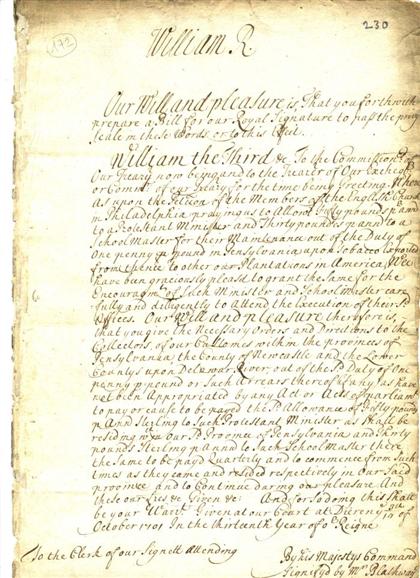 172
230
William R
Our Will and pleasure is, That you forthwith
prepare a Bill for our Royal Signature to pass the privy
Seale in these Words, or to this Effect.
William the Third &c To the Commissionrs
Our Treasury now being and to the Treasr of Our Exchequr
or Commrs of our Treasury for the time being Greeting. Wh
as upon the Petition of the Members of the English Church
in Philadelphia praying us to Allow fifty pounds p ann
to a Protestant Minister and Thirty pounds p ann to a
School Master for their Maintenance out of the Duty of
One penny p pound in Pensylvania upon Tobacco Exported
from thence to other our Plantations in America, Wee
have been graciously pleasd to grant the Same for the
Encouragmt of Such Minister and School Master care
fully and diligently to attend the Execution of their Sd
Offices. Our Will and pleasure therefore is,
that you give the Necessary Orders and Directions to the
Collectors, of our Customes within the provinces of
Pensylvania, the County of Newcastle and the Lower
Countys upon Delewar River, out of the Sd Duty of One
penny p pound or Such Arrears thereof as have
not been Appropriated by any Act or Acts of parliamt
to pay or cause to be payed the Sd Allowance of fifty pound
p Ann Sterling to Such Protestant Minister as Shall be
residing wth in Our Sd Province of Pensylvania and thirty
pounds Sterling p Annd to Such School Master there
the Same to be payd quarterly and to commence from Such
times as they come and resided respectively in Our Said
province and to Continue during our pleasure And
these our Lres &c Given &c: And for So doing this Shall
be your Warrt Given at our Court at Dieren ye
October 1701 In the thirteenth Year of Or Reigne
To the Clerk of our Signett attending
By his Majestys Command
Signed by Mr Blathwayt